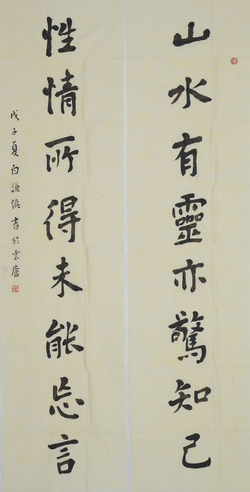 山水有靈亦驚知己
性情所得未能忘言
戊子夏白謙慎書於雲廬